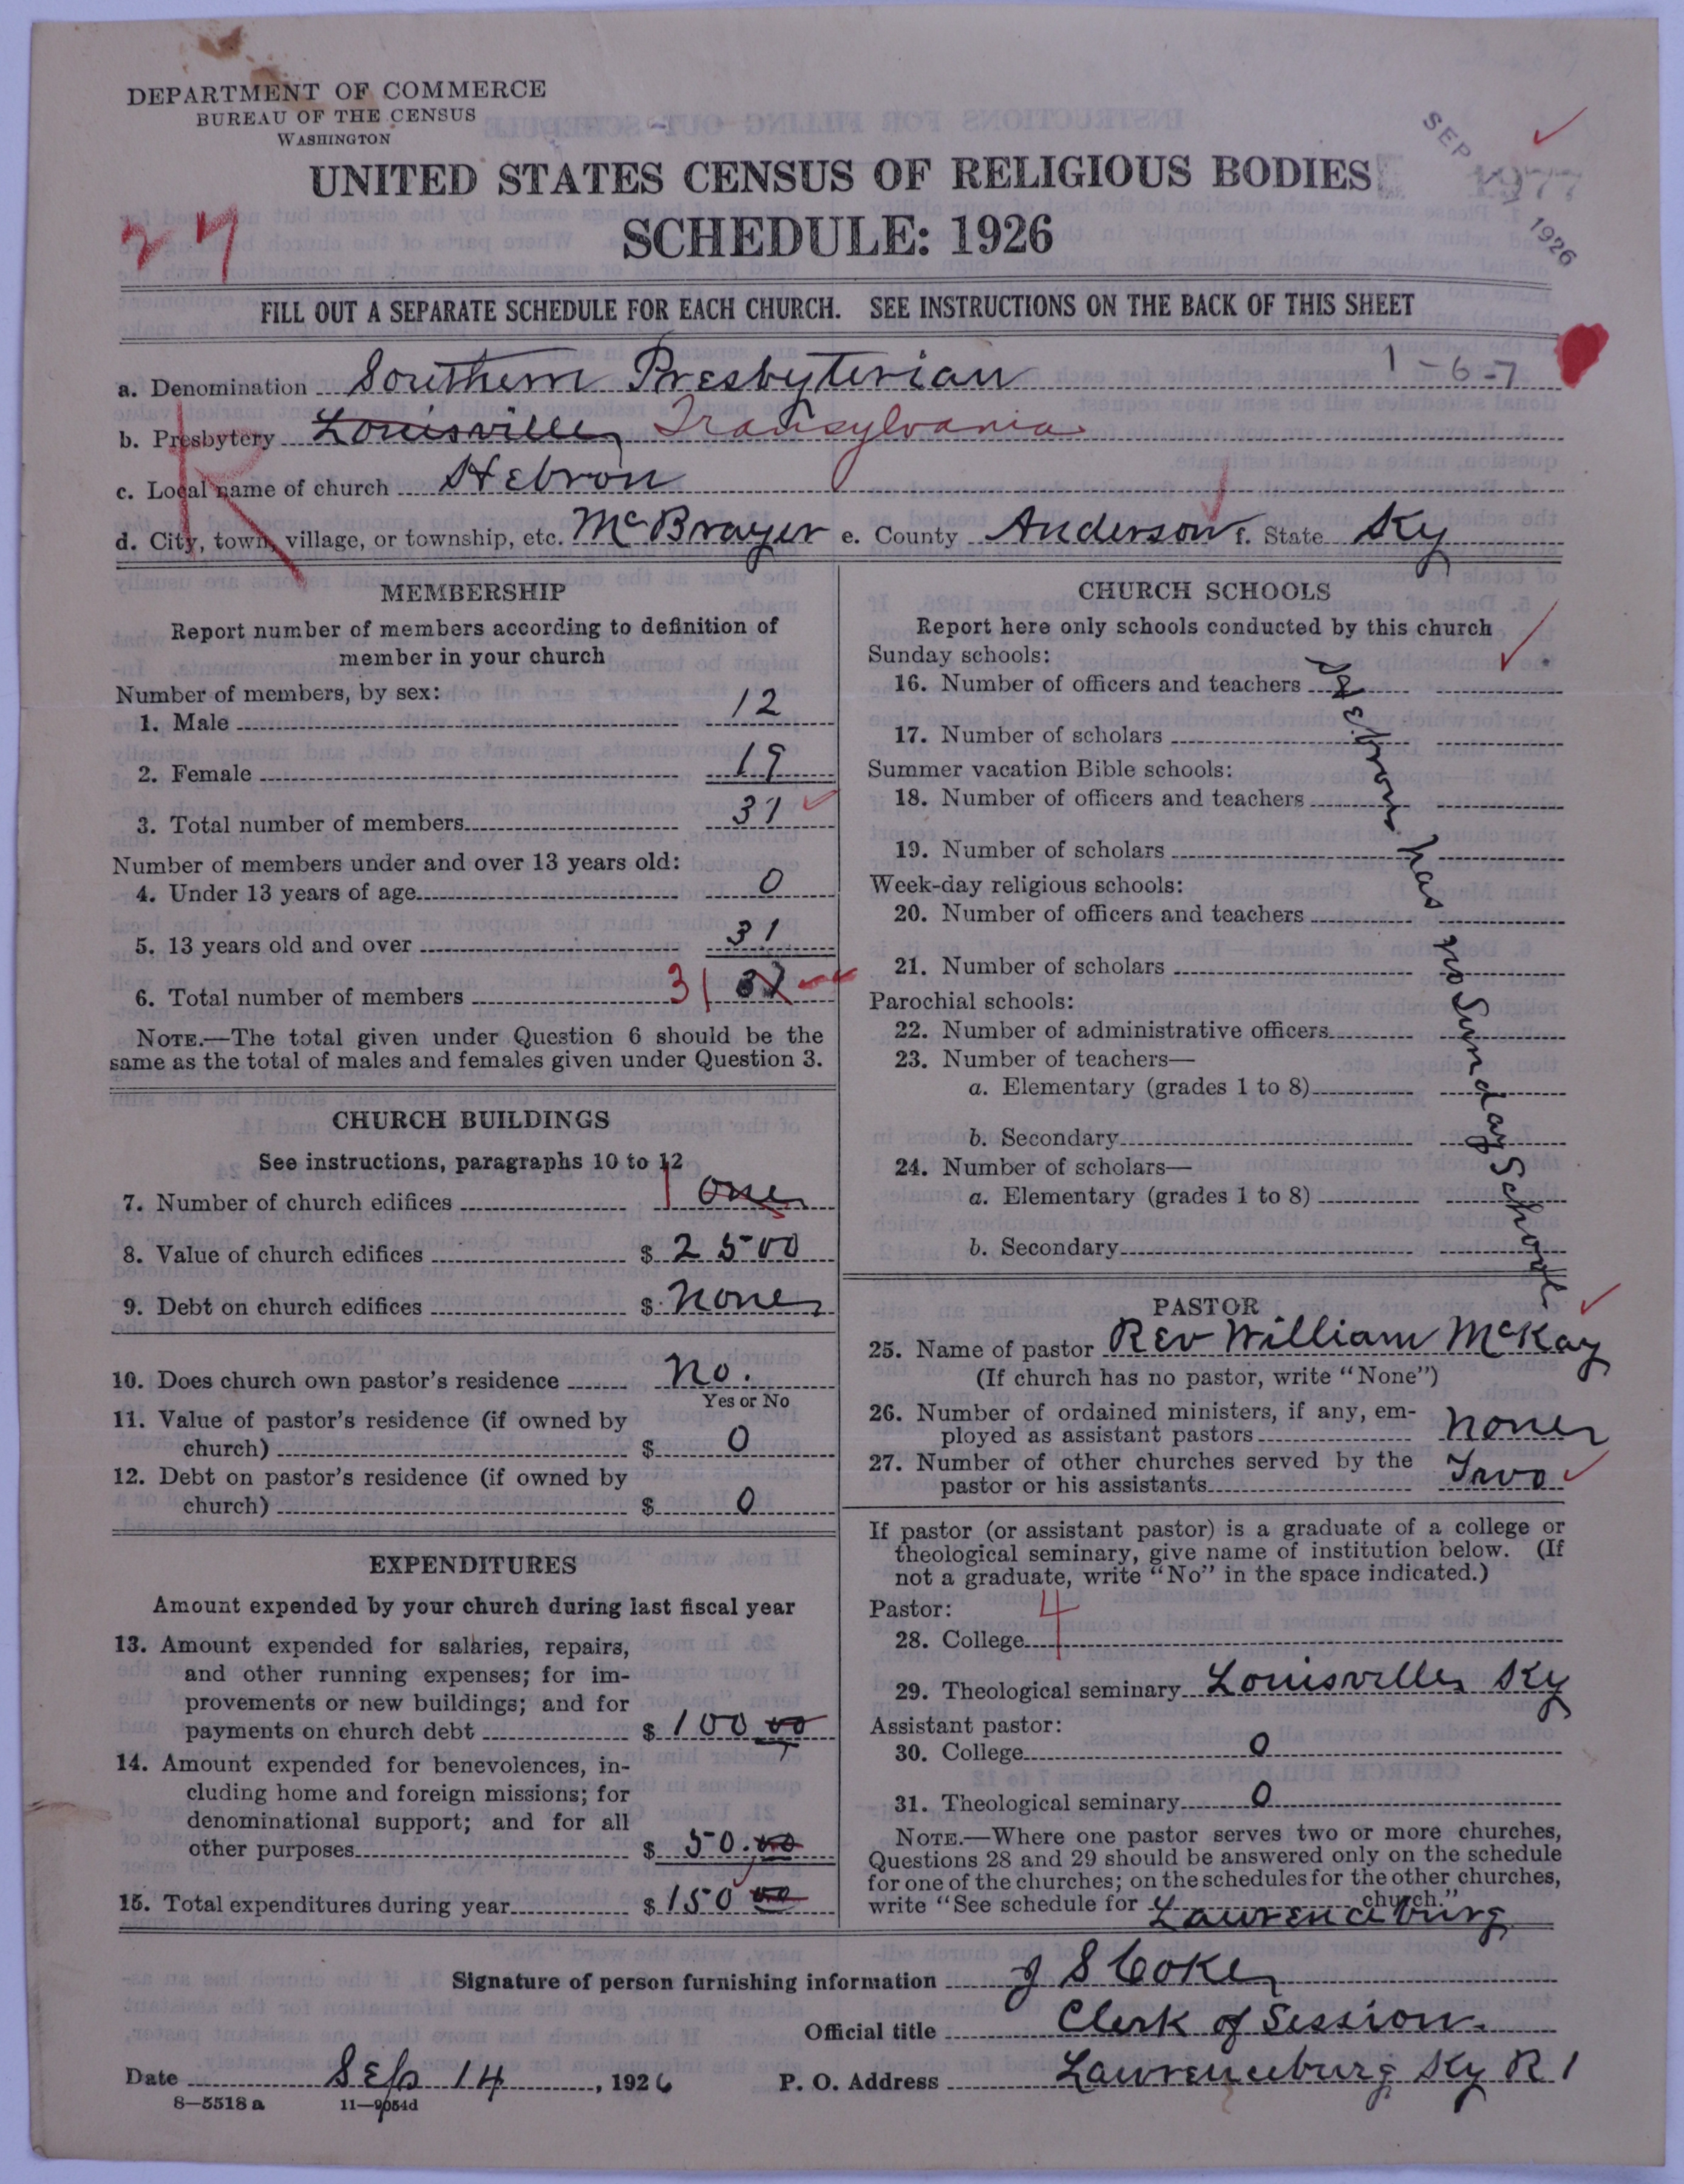 DEPARTMENT OF COMMERCE
BUREAU OF THE CENSUS
WASHINGTON
UNITED STATES CENSUS OF RELIGIOUS BODIES
SCHEDULE: 1926
SEP 1926
FILL OUT A SEPARATE SCHEDULE FOR EACH CHURCH. SEE INSTRUCTIONS ON THE BACK OF THIS SHEET
a. Denomination Southern Presbyterian 1-6-7
b. Presbytery Louisville Transylvania
c. Local name of church Hebron
d. City, town, village, or township, etc. McBrayer e. County Anderson f. State Ky
R
MEMBERSHIP
Report number of members according to definition of
member in your church
Number of members, by sex:
1. Male 12
2. Female 19
3. Total number of members 31
Number of members under and over 13 years old:
4. Under 13 years of age 0
5. 13 years old and over 31
6. Total number of members 31
NOTE.—The total given under Question 6 should be the
same as the total of males and females given under Question 3.
CHURCH BUILDINGS
See instructions, paragraphs 10 to 12
7. Number of church edifices 1 one
8. Value of church edifices $ 2500
9. Debt on church edifices $ none
10. Does church own pastor's residence no.
Yes or No
11. Value of pastor's residence (if owned by
church) $ 0
12. Debt on pastor's residence (if owned by
church) $ 0
EXPENDITURES
Amount expended by your church during last fiscal year
13. Amount expended for salaries, repairs,
and other running expenses; for im-
provements or new buildings; and for
payments on church debt $ 100 00
14. Amount expended for benevolences, in-
cluding home and foreign missions; for
denominational support; and for all
other purposes $ 50.00
15. Total expenditures during year $ 150 00
CHURCH SCHOOLS
Report here only schools conducted by this church
Sunday schools:
16. Number of officers and teachers
17. Number of scholars
Summer vacation Bible schools:
18. Number of officers and teachers
19. Number of scholars
Week-day religious schools:
20. Number of officers and teachers
21. Number of scholars
Parochial schools:
22. Number of administrative officers
23. Number of teachers—
a. Elementary (grades 1 to 8)
b. Secondary
24. Number of scholars—
a. Elementary (grades 1 to 8)
b. Secondary
Hebron has no Sunday School
PASTOR
25. Name of pastor Rev William McKay
(If church has no pastor, write "None")
26. Number of ordained ministers, if any, em-
ployed as assistant pastors none
27. Number of other churches served by the
pastor or his assistants Two
If pastor (or assistant pastor) is a graduate of a college or
theological seminary, give name of institution below. (If
not a graduate, write "No" in the space indicated.)
Pastor: 4
28. College
29. Theological seminary Louisville Ky
Assistant pastor:
30. College 0
31. Theological seminary 0
NOTE.—Where one pastor serves two or more churches,
Questions 28 and 29 should be answered only on the schedule
for one of the churches; on the schedules for the other churches,
write "See schedule for Lawrenceburg church."
Signature of person furnishing information J S Coke
Official title Clerk of Session.
Date Sep 14, 1926 P. O. Address Lawrenceburg Ky R 1
8—5518 a 11—9054d